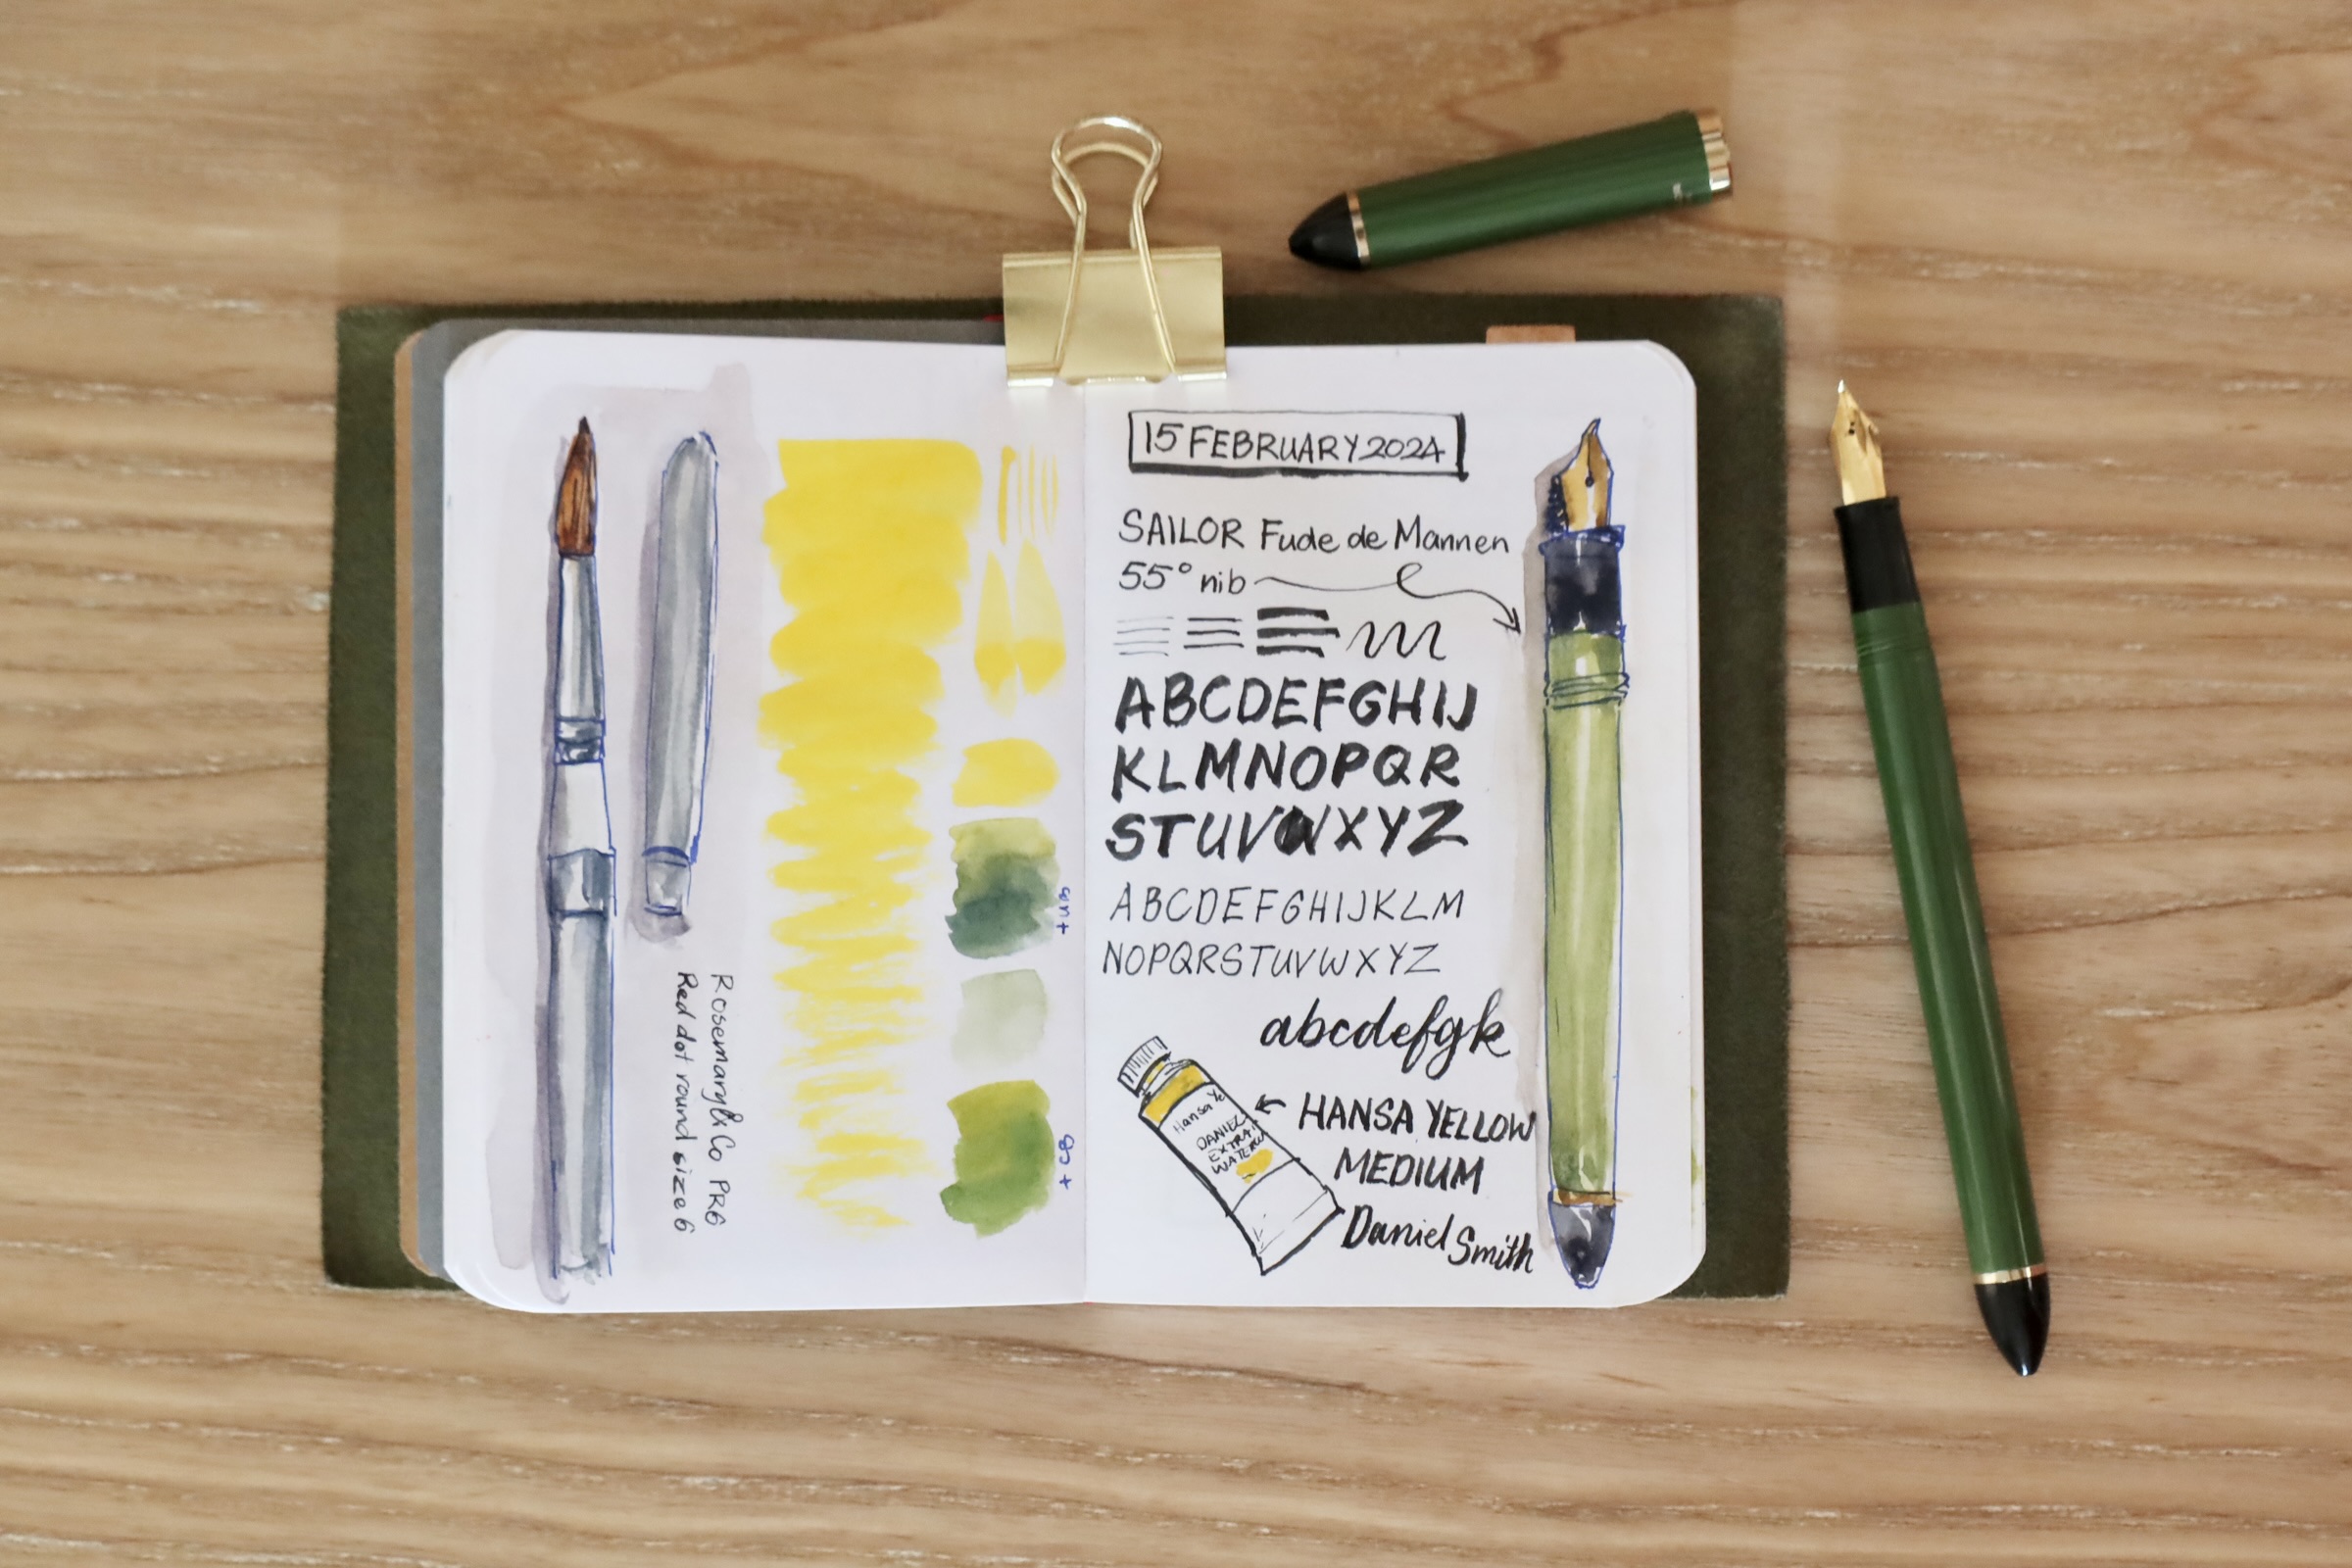 Rosemary & Co PR6
Red dot round size 6
+ UB
+ CB
15 FEBRUARY 2024
SAILOR Fude de Mannen
55° nib
ABCDEFGHIJ
KLMNOPQR
STUVWXYZ
ABCDEFGHIJKLM
NOPQRSTUVWXYZ
abcdefgk
Hansa Ye
DANIEL
EXTRA
WATERCO
HANSA YELLOW
MEDIUM
Daniel Smith